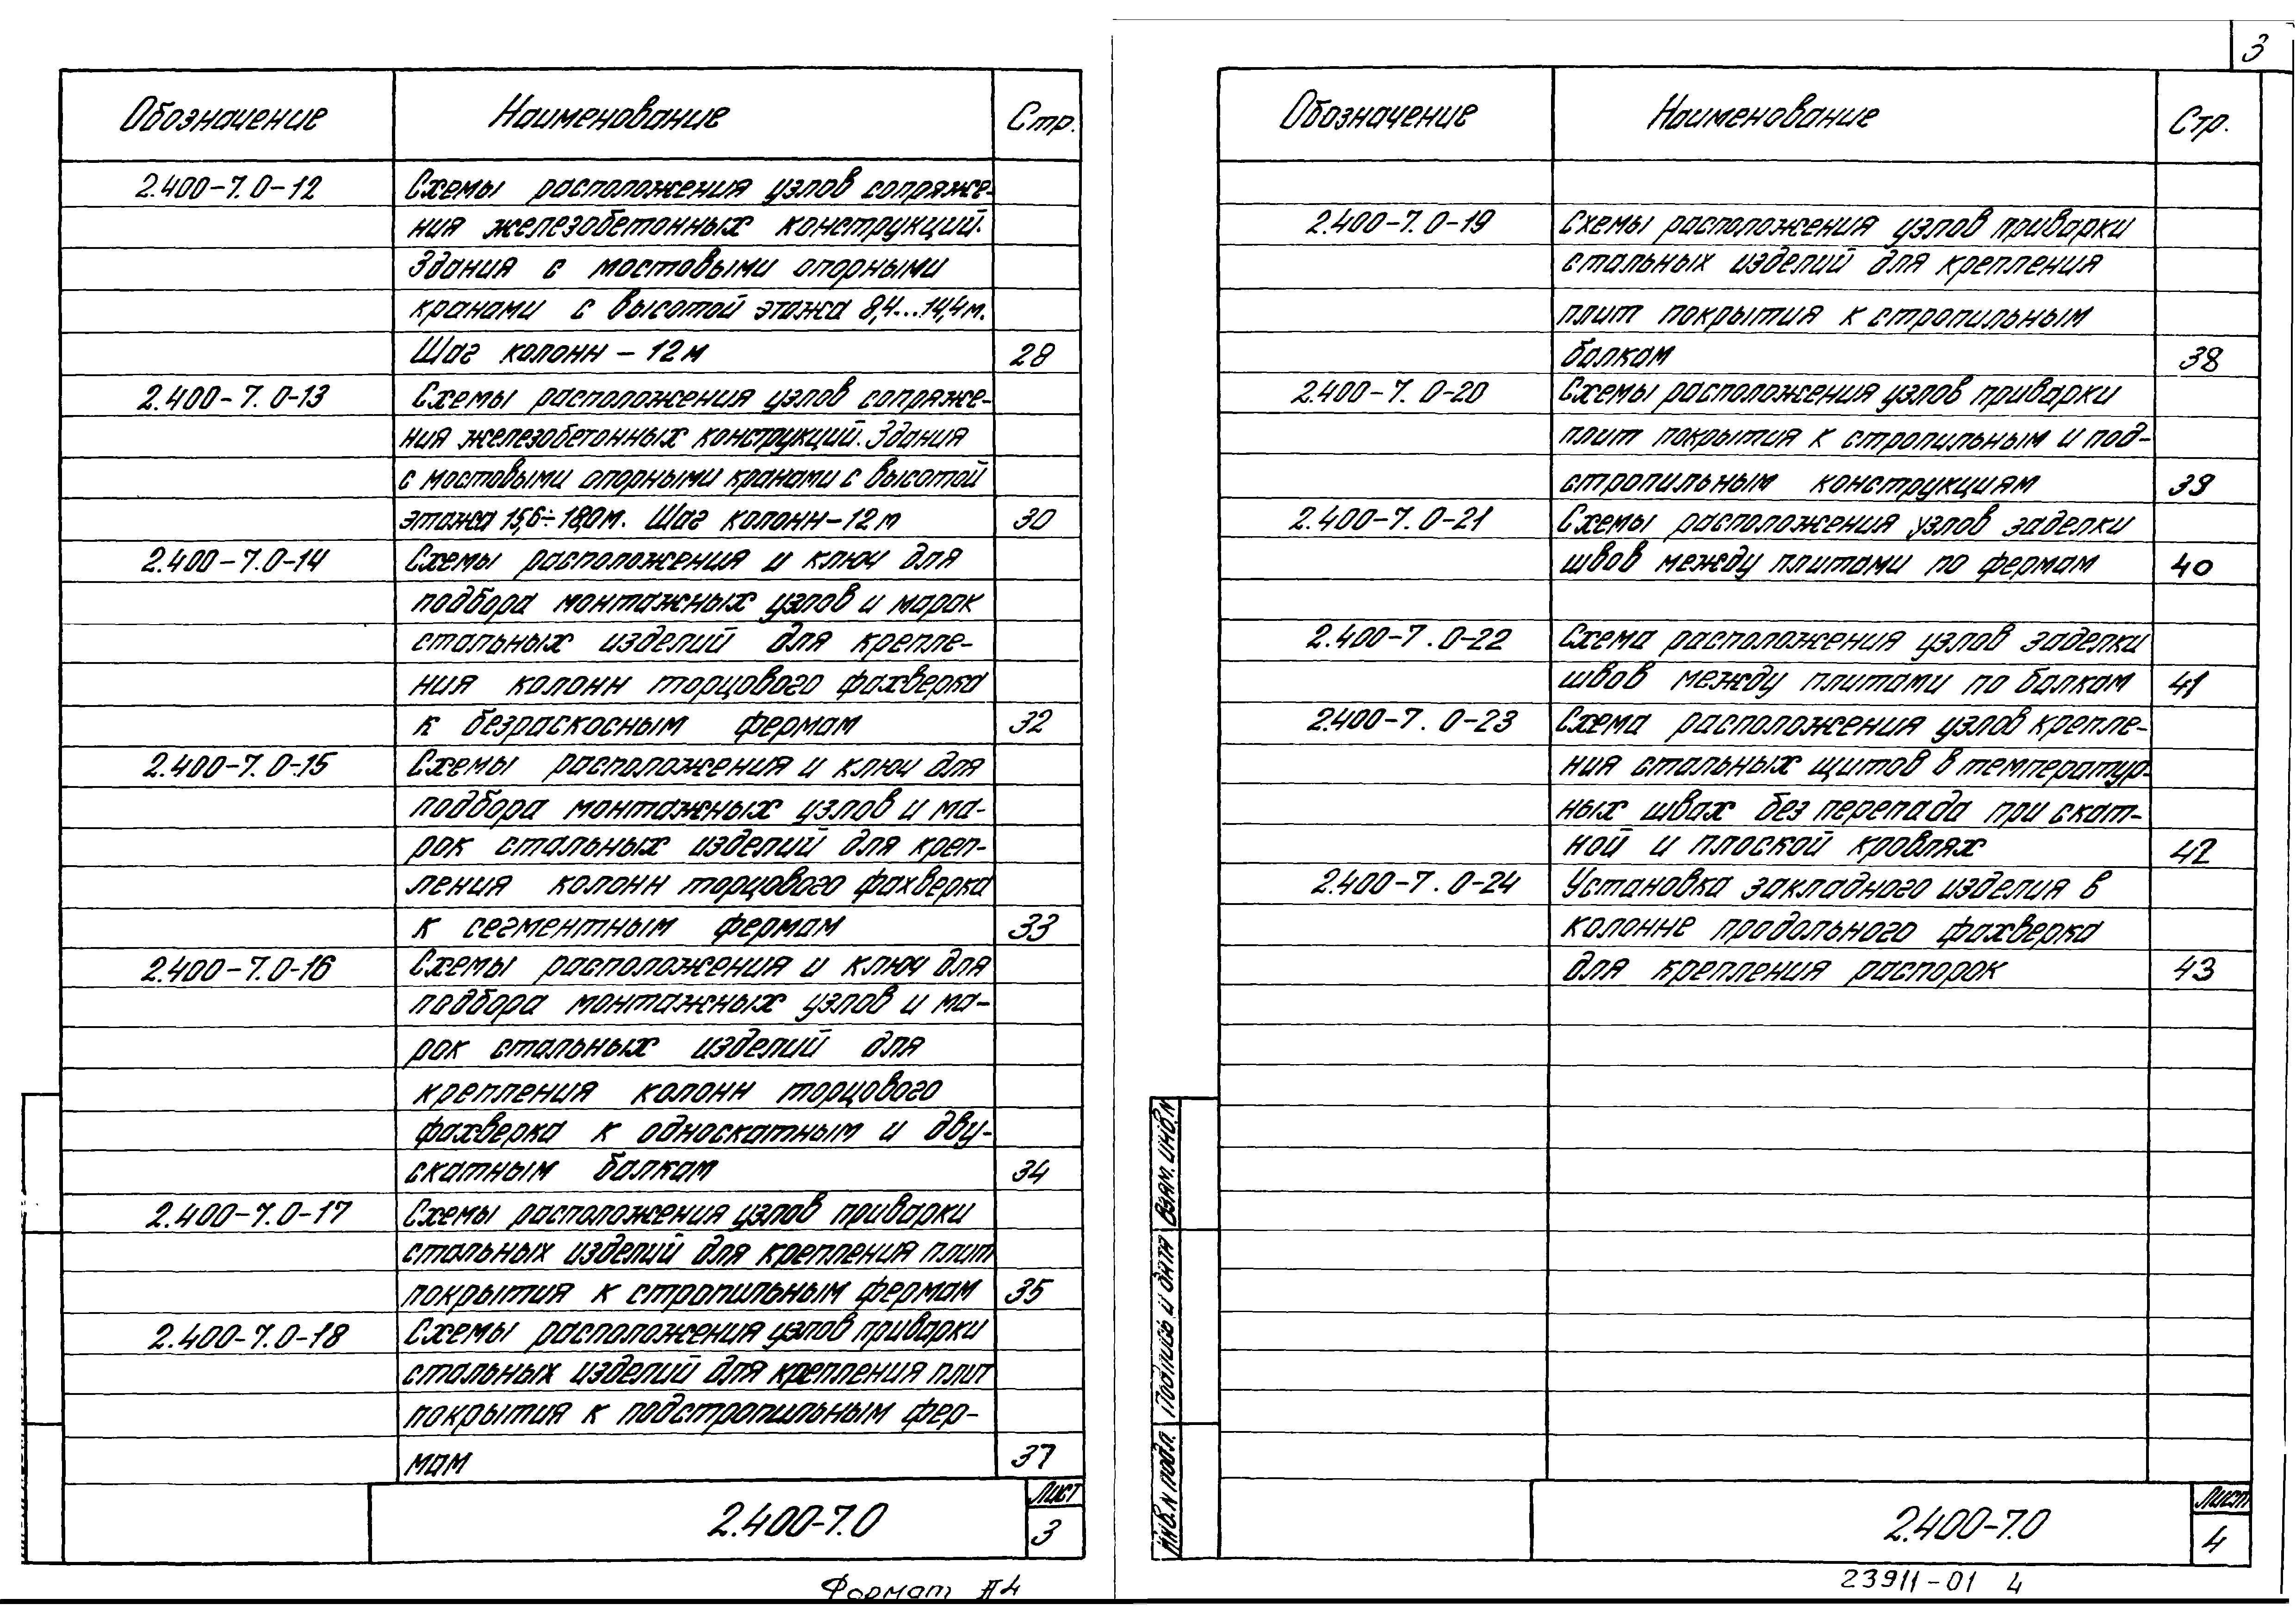 Обозначение Наименование Стр.
2.400-7.0-12 Схемы расположения узлов сопряже-
ния железобетонных конструкций.
Здания с мостовыми опорными
кранами с высотой этажа 8,4...14,4м.
Шаг колонн - 12м 28
2.400-7.0-13 Схемы расположения узлов сопряже-
ния железобетонных конструкций. Здания
с мостовыми опорными кранами с высотой
этажа 15,6÷18,0м. Шаг колонн-12м 30
2.400-7.0-14 Схемы расположения и ключ для
подбора монтажных узлов и марок
стальных изделий для крепле-
ния колонн торцового фахверка
к безраскосным фермам 32
2.400-7.0-15 Схемы расположения и ключ для
подбора монтажных узлов и ма-
рок стальных изделий для креп-
ления колонн торцового фахверка
к сегментным фермам 33
2.400-7.0-16 Схемы расположения и ключ для
подбора монтажных узлов и ма-
рок стальных изделий для
крепления колонн торцового
фахверка к односкатным и дву-
скатным балкам 34
2.400-7.0-17 Схемы расположения узлов приварки
стальных изделий для крепления плит
покрытия к стропильным фермам 35
2.400-7.0-18 Схемы расположения узлов приварки
стальных изделий для крепления плит
покрытия к подстропильным фер-
мам 37
2.400-7.0
Лист
3
Формат А4
3
Обозначение Наименование Стр.
2.400-7.0-19 Схемы расположения узлов приварки
стальных изделий для крепления
плит покрытия к стропильным
балкам 38
2.400-7.0-20 Схемы расположения узлов приварки
плит покрытия к стропильным и под-
стропильным конструкциям 39
2.400-7.0-21 Схемы расположения узлов заделки
швов между плитами по фермам 40
2.400-7.0-22 Схема расположения узлов заделки
швов между плитами по балкам 41
2.400-7.0-23 Схема расположения узлов крепле-
ния стальных щитов в температур-
ных швах без перепада при скат-
ной и плоской кровлях 42
2.400-7.0-24 Установка закладного изделия в
колонне продольного фахверка
для крепления распорок 43
Взам. инв. N
Подпись и дата
Инв. N подл.
2.400-7.0
Лист
4
23911-01 4